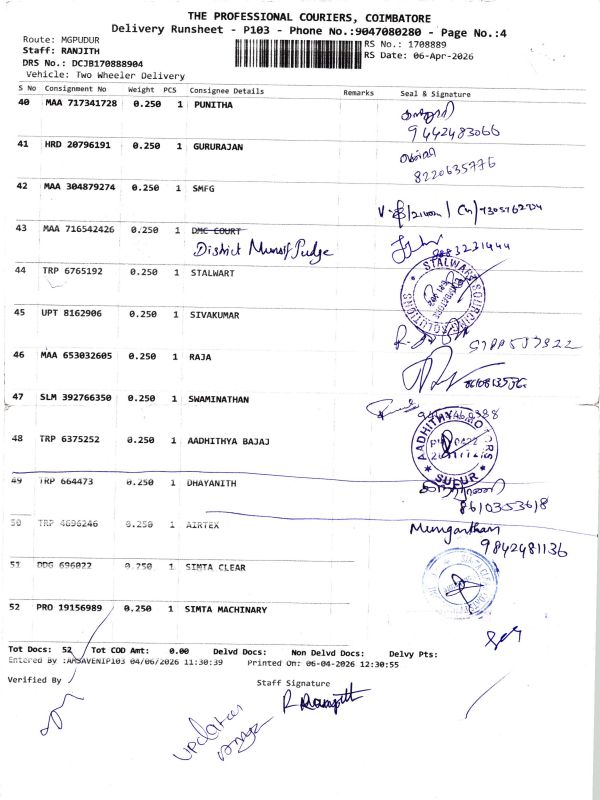 THE PROFESSIONAL COURIERS, COIMBATORE
Delivery Runsheet - P103 - Phone No.:9047080280 - Page No.:4
Route: MGPUDUR
RS No.: 1708889
Staff: RANJITH
RS Date: 06-Apr-2026
DRS No.: DCJB170888904
Vehicle: Two Wheeler Delivery
S No Consignment No Weight PCS Consignee Details Remarks Seal & Signature
40 MAA 717341728 0.250 1 PUNITHA
9442483066
41 HRD 20796191 0.250 1 GURURAJAN
8220635776
42 MAA 304879274 0.250 1 SMFG
43 MAA 716542426 0.250 1 DMC COURT
District Munsif Judge
44 TRP 6765192 0.250 1 STALWART
STALWART SOURCING SOLUTIONS
45 UPT 8162906 0.250 1 SIVAKUMAR
46 MAA 653032605 0.250 1 RAJA
47 SLM 392766350 0.250 1 SWAMINATHAN
48 TRP 6375252 0.250 1 AADHITHYA BAJAJ
AADHITHYA MOTORS
SULUR
49 TRP 664473 0.250 1 DHAYANITH
8610353618
50 TRP 4696246 0.250 1 AIRTEX
9842481136
51 DDG 696022 0.750 1 SIMTA CLEAR
52 PRO 19156989 0.250 1 SIMTA MACHINARY
Tot Docs: 52 Tot COD Amt: 0.00 Delvd Docs: Non Delvd Docs: Delvy Pts:
Entered By :ARSAVENIP103 04/06/2026 11:30:39 Printed On: 06-04-2026 12:30:55
Verified By
Staff Signature